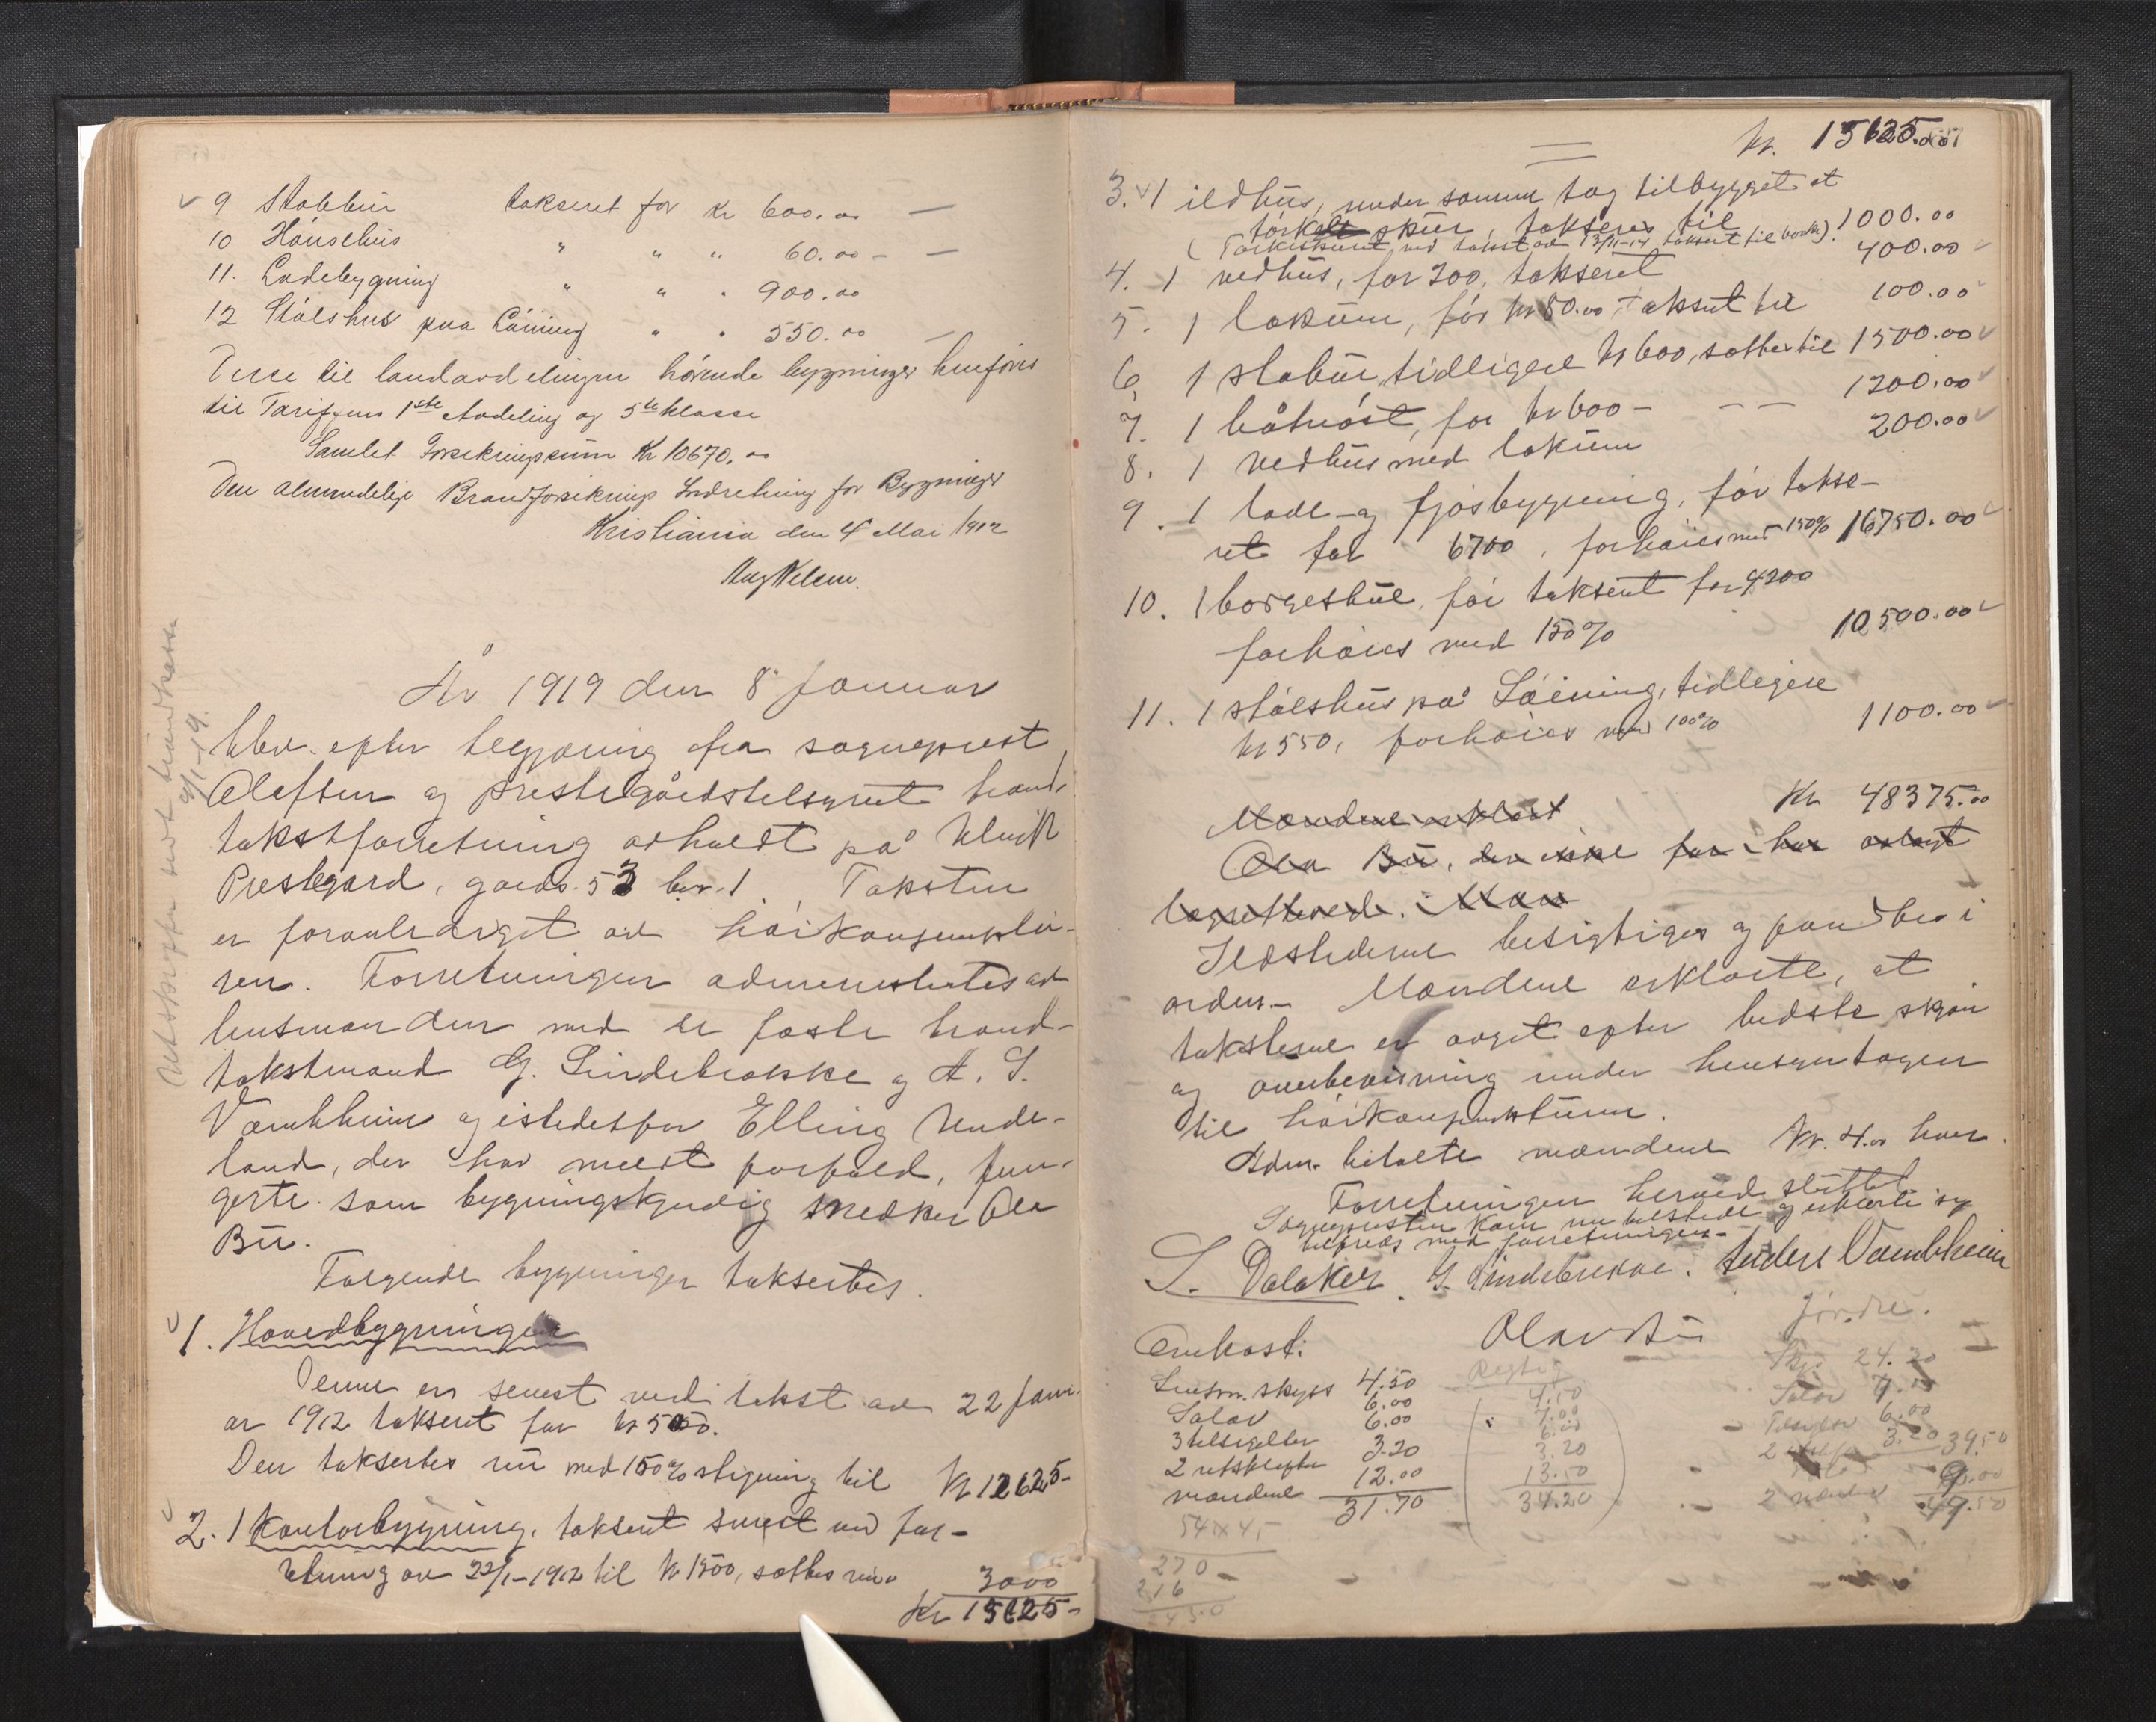 9 Stabbur takseret for Kr 600.00 —
10 Hønsehus " " " 60.00 - —
11. Ladebygning " " " 900.00
12 Stølshus paa Låining " " 550.00 —
Disse til landavdelingen hørende bygninger henføres
til Tariffens 1ste Avdeling og 5te klasse
Samlet Forsikringssum Kr 10670.00
Den almindelige Brandforsikrings Indretning for Bygninger
Kristiania den 4 Mai 1912
År 1919 den 8 januar
blev efter begjæring fra sogneprest
Oleftsen og prestegårdstilsynet brand-
takstforretning avholdt på Ulvik
Prestegard, gards. 53 br. 1. Taksten
er foranlediget av høikonjunktu-
ren. Forretningen administrertes av
lensmanden med de faste brand-
takstmænd G. Lindebrække og A. S.
Vambheim og istedetfor Elling Unde-
land, der har meldt forfald, fun-
gerte som bygningskyndig snedker Ola
Bu.
Følgende bygninger taksertes.
1. Hovedbygningen
Denne er senest ved takst av 22 janu-
ar 1912 takseret for kr 5050.
Den taksertes nu med 150% stigning til Kr 12625-
2. 1 Kontorbygning, taksert senest ved for-
retning av 22/1-1912 til kr 1500, sættes nu 3000
Kr 15625-
Utskrift sendt brandkasse
9/1-19.
kr. 15625.00
3. 1 ildhus, under samme tag tilbygget et
tørkeskur, takseres til 1000.00
(Tørkeskuret ved takst av 13/11-14 taksert til )
4. 1 vedhus, før 200, takseret 400.00
5. 1 lokum, før kr 80.00, taksert til 100.00
6. 1 stabur, tidligere kr 600, sættes til 1500.00
7. 1 båtnøst, før kr 600 - — — 1200.00
8. 1 vedhus med lokum 200.00
9. 1 lade- og fjøsbygning, før takse-
ret for 6700, forhøies med 150% 16750.00
10. 1 borgestue, før taksert for 4200
forhøies med 150% 10500.00
11. 1 stølshus på Låining, tidligere
kr 550, forhøies med 100% 1100.00
Kr 48375.00
Mændene erklært
Ola Bu, der ikke før har avlagt
Ildstederne besigtiges og fandtes i
orden. - Mændene erklærte, at
taksterne er avgit efter bedste skjøn
og overbevisning under hensyntagen
til høikonjunkturen.
Adm. betalte mændene kr. 4.00 hver.
Forretningen herved sluttet
Sognepresten kom nu tilstede og erklærte sig
tilfreds med forretningen -
L. Dalaker. G. Lindebrekke. Anders Vambheim
Ola Bu
Omkost:
Lensm. skyss 4.50
Salær 6.00
3 tilsigelser 6.00
2 utskrifter 3.20
mændene 12.00
31.70
4.50
7.00
6.00
3.20
13.50
34.20
24.30
Salær
6.00
3.20 39.50
2 mændene
49.50
54 x 45
270
216
2430